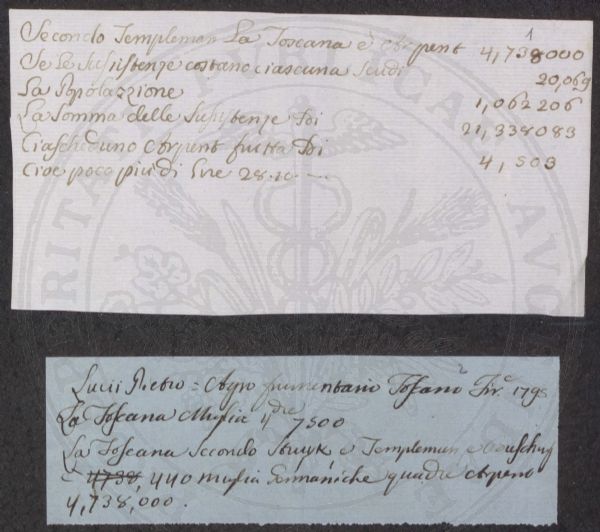 1
Secondo Templeman La Toscana è Arpent 4,738000
Se le Sussistenze costano ciascuna Scudi 20,069
La Popolazzione 1,062206
La Somma delle Sussistenze Di 21,338083
Ciascheduno Arpent frutta Di 4,503
Cioe poco piu di Lire 28.10
Lucii Pietro = Agro frumentario Toscano Fir.e 1798
La Toscana Miglia q.dre 7500
La Toscana secondo Struyk e Templeman e
4738 440 miglia Germaniche quadre Arpent
4,738,000.